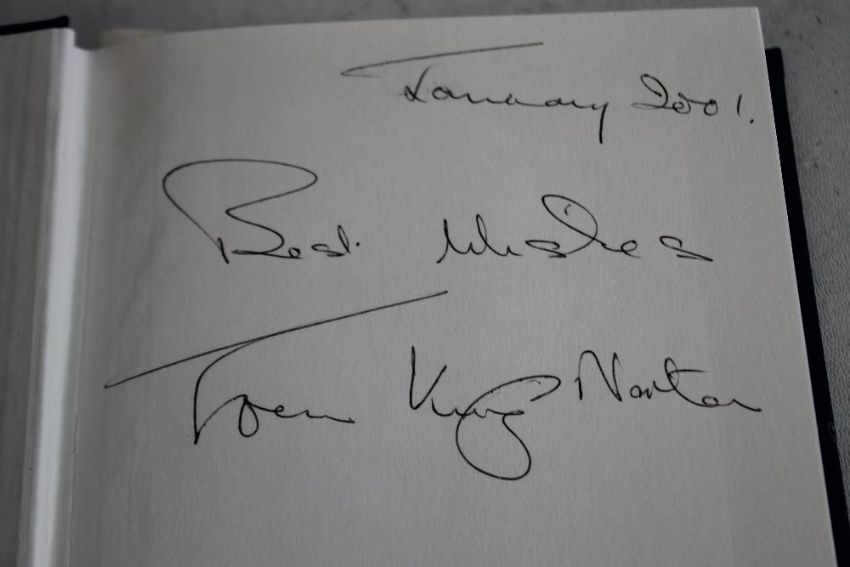 January 2001.
Best Wishes
King Norton